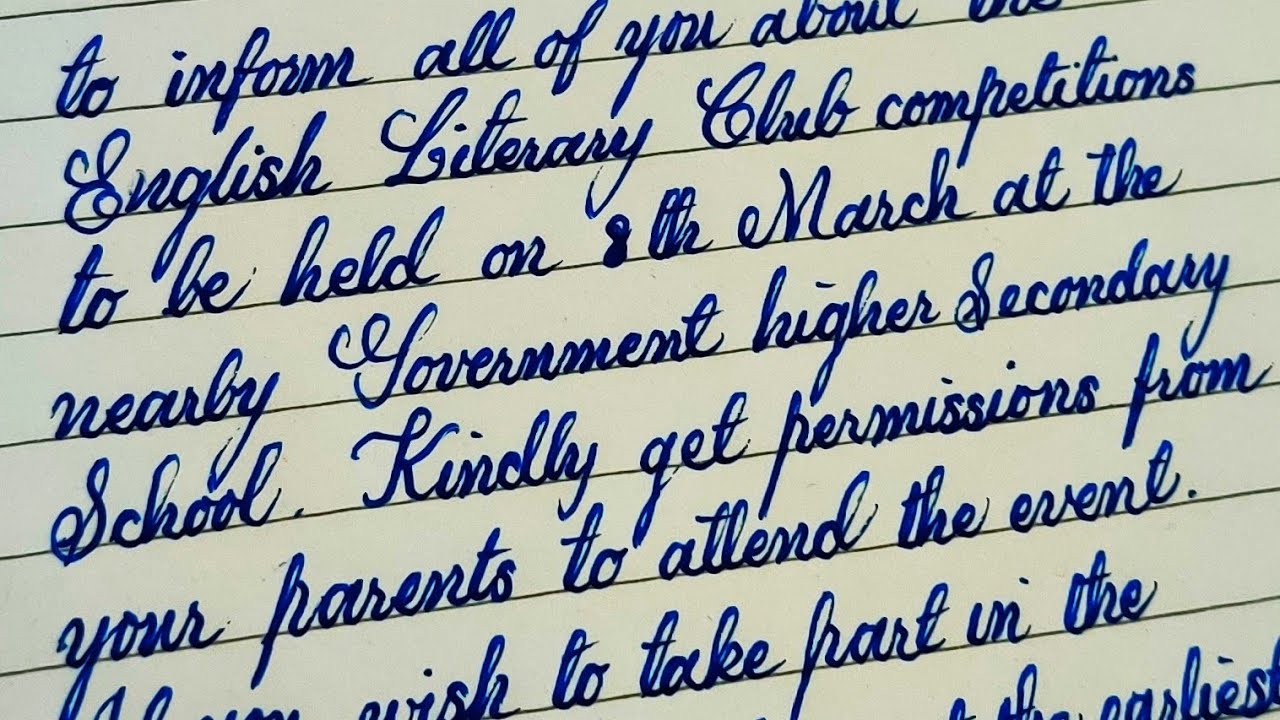 to inform all of you about the
English Literary Club competitions
to be held on 8th March at the
nearby Government higher Secondary
School. Kindly get permissions from
your parents to attend the event.
If you wish to take part in the
the earliest